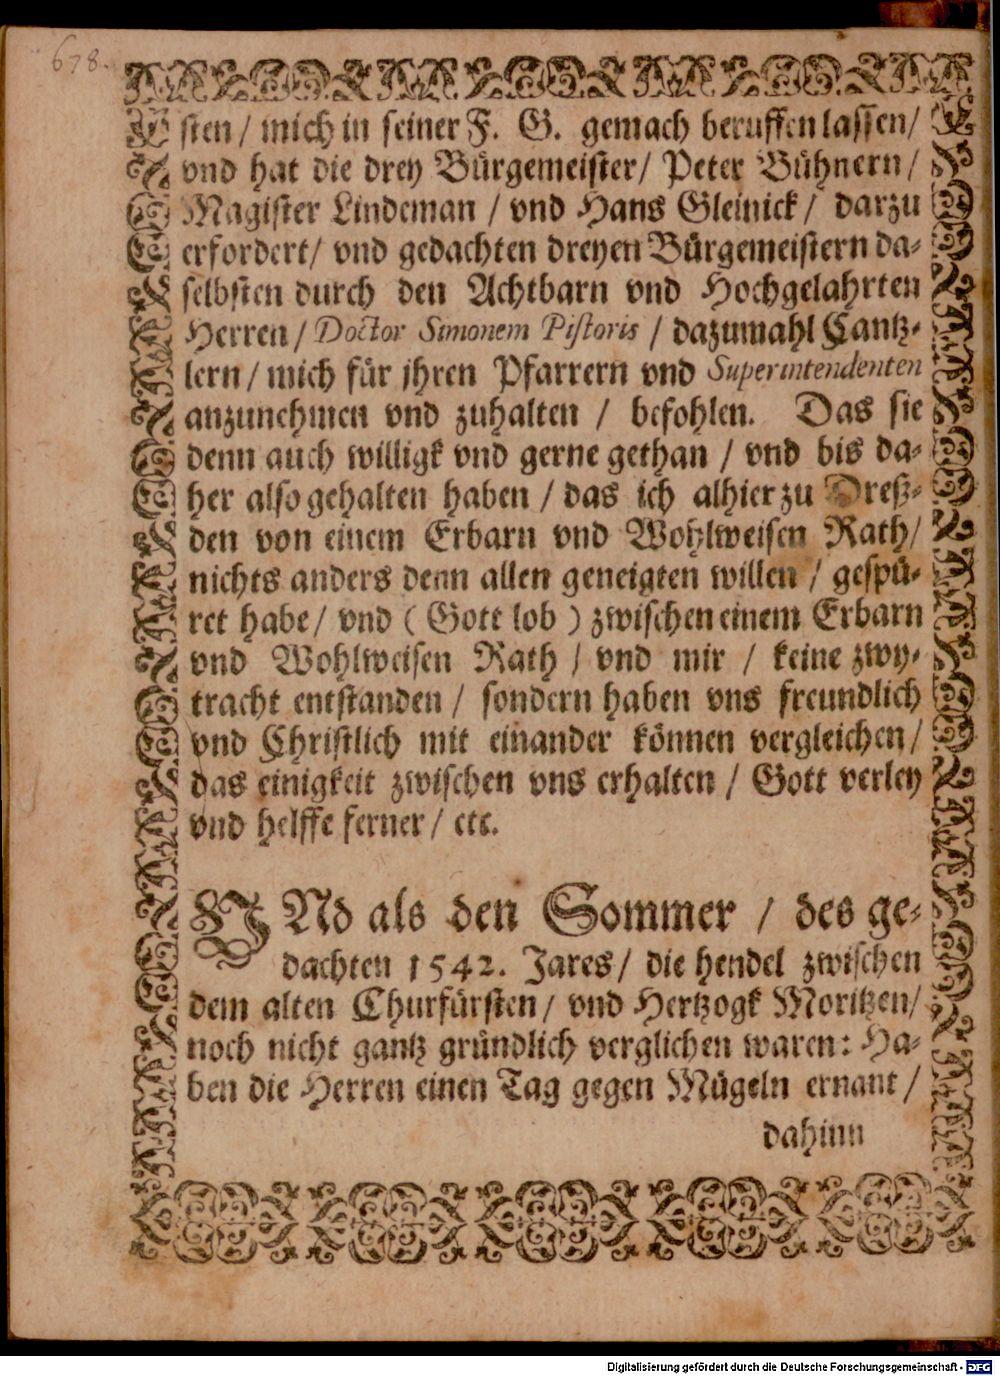 678.
sten / mich in seiner F. G. gemach beruffen lassen /
vnd hat die drey Bürgemeister / Peter Bühnern /
Magister Lindeman / vnd Hans Gleinick / darzu
erfordert / vnd gedachten dreyen Bürgemeistern da-
selbsten durch den Achtbarn vnd Hochgelahrten
Herren / Doctor Simonem Pistoris / dazumahl Cantz-
lern / mich für jhren Pfarrern vnd Superintendenten
anzunehmen vnd zuhalten / befohlen. Das sie
denn auch willigk vnd gerne gethan / vnd bis da-
her also gehalten haben / das ich alhier zu Dreß-
den von einem Erbarn vnd Wohlweisen Rath /
nichts anders denn allen geneigten willen / gespü-
ret habe / vnd ( Gott lob ) zwischen einem Erbarn
vnd Wohlweisen Rath / vnd mir / keine zwy-
tracht entstanden / sondern haben vns freundlich
vnd Christlich mit einander können vergleichen /
das einigkeit zwischen vns erhalten / Gott verley
vnd helffe ferner / etc.
VNd als den Sommer / des ge-
dachten 1542. Jares / die hendel zwischen
dem alten Churfürsten / vnd Hertzogk Moritzen /
noch nicht gantz gründlich verglichen waren: Ha-
ben die Herren einen Tag gegen Mügeln ernant /
dahinn
Digitalisierung gefördert durch die Deutsche Forschungsgemeinschaft - DFG